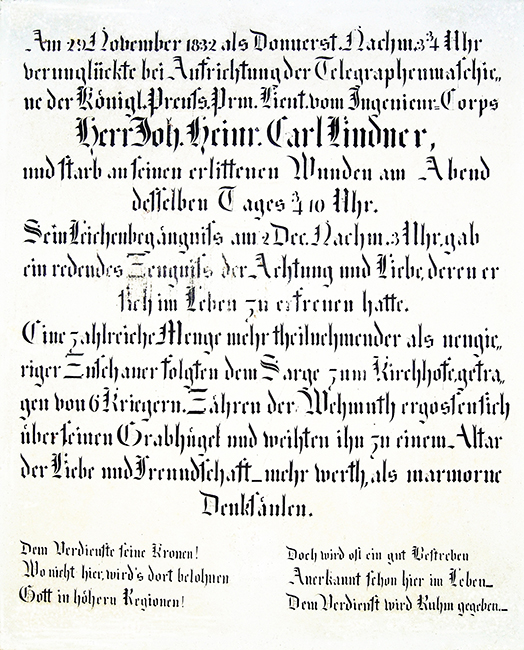 Am 29 November 1832 als Donnerst. Nachm. 3¾ Uhr
verunglückte bei Aufrichtung der Telegraphenmaschie„
ne der Königl. Preuſs. Prm. Lieut. vom Ingenieur-Corps
Herr Joh. Heinr. Carl Lindner,
und ſtarb an ſeinen erlittenen Wunden am Abend
deſſelben Tages ¾ 10 Uhr.
Sein Leichenbegängniſs am 2 Dec. Nachm. 3 Uhr, gab
ein redendes Zeugniſs der Achtung und Liebe, deren er
ſich im Leben zu erfreuen hatte.
Eine zahlreiche Menge mehr theilnehmender als neugie„
riger Zuſchauer folgten dem Sarge zum Kirchhofe, getra„
gen von 6 Kriegern. Zähren der Wehmuth ergoſſen ſich
über ſeinen Grabhügel und weihten ihn zu einem Altar
der Liebe und Freundſchaft_ mehr werth, als marmorne
Denkſäulen.
Dem Verdienſte ſeine Kronen!
Wo nicht hier, wird's dort belohnen
Gott in höhern Regionen!
Doch wird oft ein gut Beſtreben
Anerkannt ſchon hier im Leben_
Dem Verdienſt wird Ruhm gegeben._